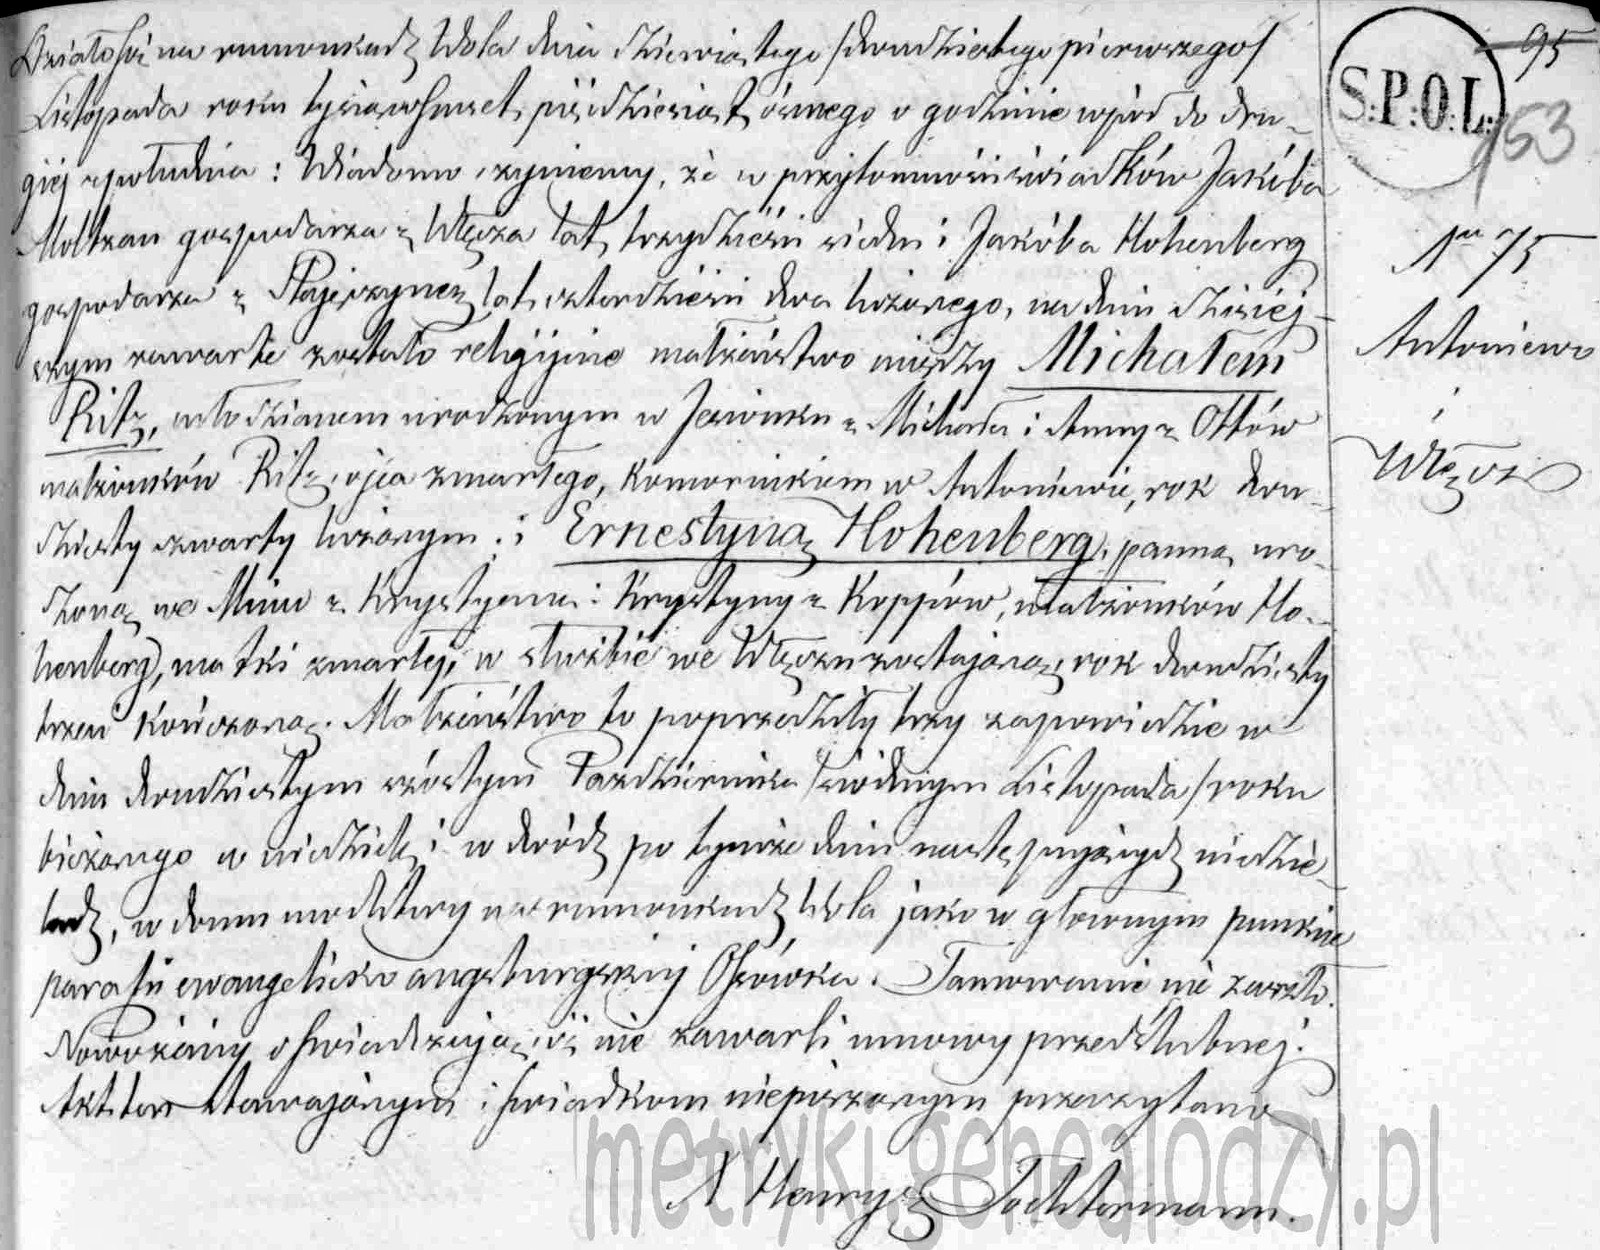 Działo się na rumunkach Wola dnia dziewiątego /dwudziestego pierwszego/
Listopada roku tysiąc ośmset pięćdziesiąt ósmego o godzinie wpół do dru-
giej z południa : Wiadomo czyniemy, że w przytomności świadków Jakóba
Moltzan gospodarza z Włęcza lat trzydzieści siedm i Jakóba Hohenberg
gospodarza z lat czterdzieści dwa liczącego, na dniu dzisiej-
szym zawarte zostało religijne małżeństwo między Michałem
Ritz, młodzianem urodzonym w z Michała i Anny z Ottów
małżonków Ritz, ojca zmarłego, komornikiem w Antoniewie, rok dwu-
dziesty czwarty liczącym ; i Ernestyną Hohenberg, panną uro-
dzoną we z Krystyana i Krystyny z Koppów, małżonków Ho-
henberg, matki zmarłej, w służbie we Włęczu zostającą, rok dwudziesty
trzeci kończącą. Małżeństwo to poprzedziły trzy zapowiedzie w
dniu dwudziestym szóstym Października /siódmym Listopada/ roku
bieżącego w niedzielę i w dwóch po tymże dniu następujących niedzie-
lach, w domu modlitwy na rumunkach Wola jako w głównym punkcie
parafii ewangelicko augsburgskiej Ossówka. Tamowanie nie zaszło.
Nowożeńcy oświadczają, iż nie zawarli umowy przedślubnej.
Akt ten stawającym i świadkom niepiszącym przeczytano
X Henryk Tochtermann.
95
S:P:O:L:
153
Nr 75
Antoniewo
i
Włęcz
metryki.genealodzy.pl